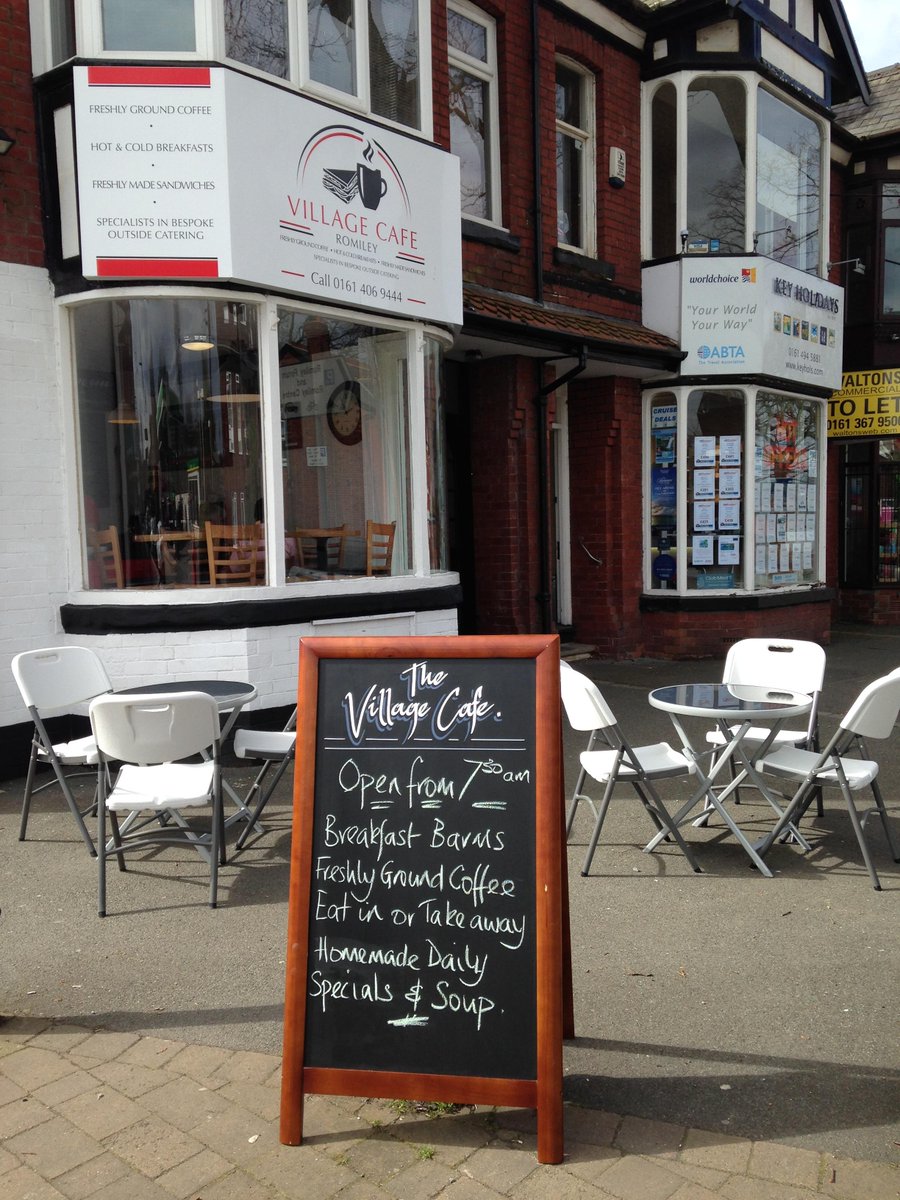 FRESHLY GROUND COFFEE
•
HOT & COLD BREAKFASTS
•
FRESHLY MADE SANDWICHES
•
SPECIALISTS IN BESPOKE
OUTSIDE CATERING
VILLAGE CAFE
ROMILEY
FRESHLY GROUND COFFEE • HOT & COLD BREAKFASTS • FRESHLY MADE SANDWICHES
SPECIALISTS IN BESPOKE OUTSIDE CATERING
Call 0161 406 9444
worldchoice
"Your World
Your Way"
ABTA
The Travel Association
KEY HOLIDAYS
0161 494 5881
www.keyhols.com
WALTONS
COMMERCIAL
TO LET
0161 367 9500
waltonsweb.com
CRUISE
DEALS
The
Village Cafe.
Open from 7 30 am
Breakfast Barms
Freshly Ground Coffee
Eat in or Take away
Homemade Daily
Specials & Soup.